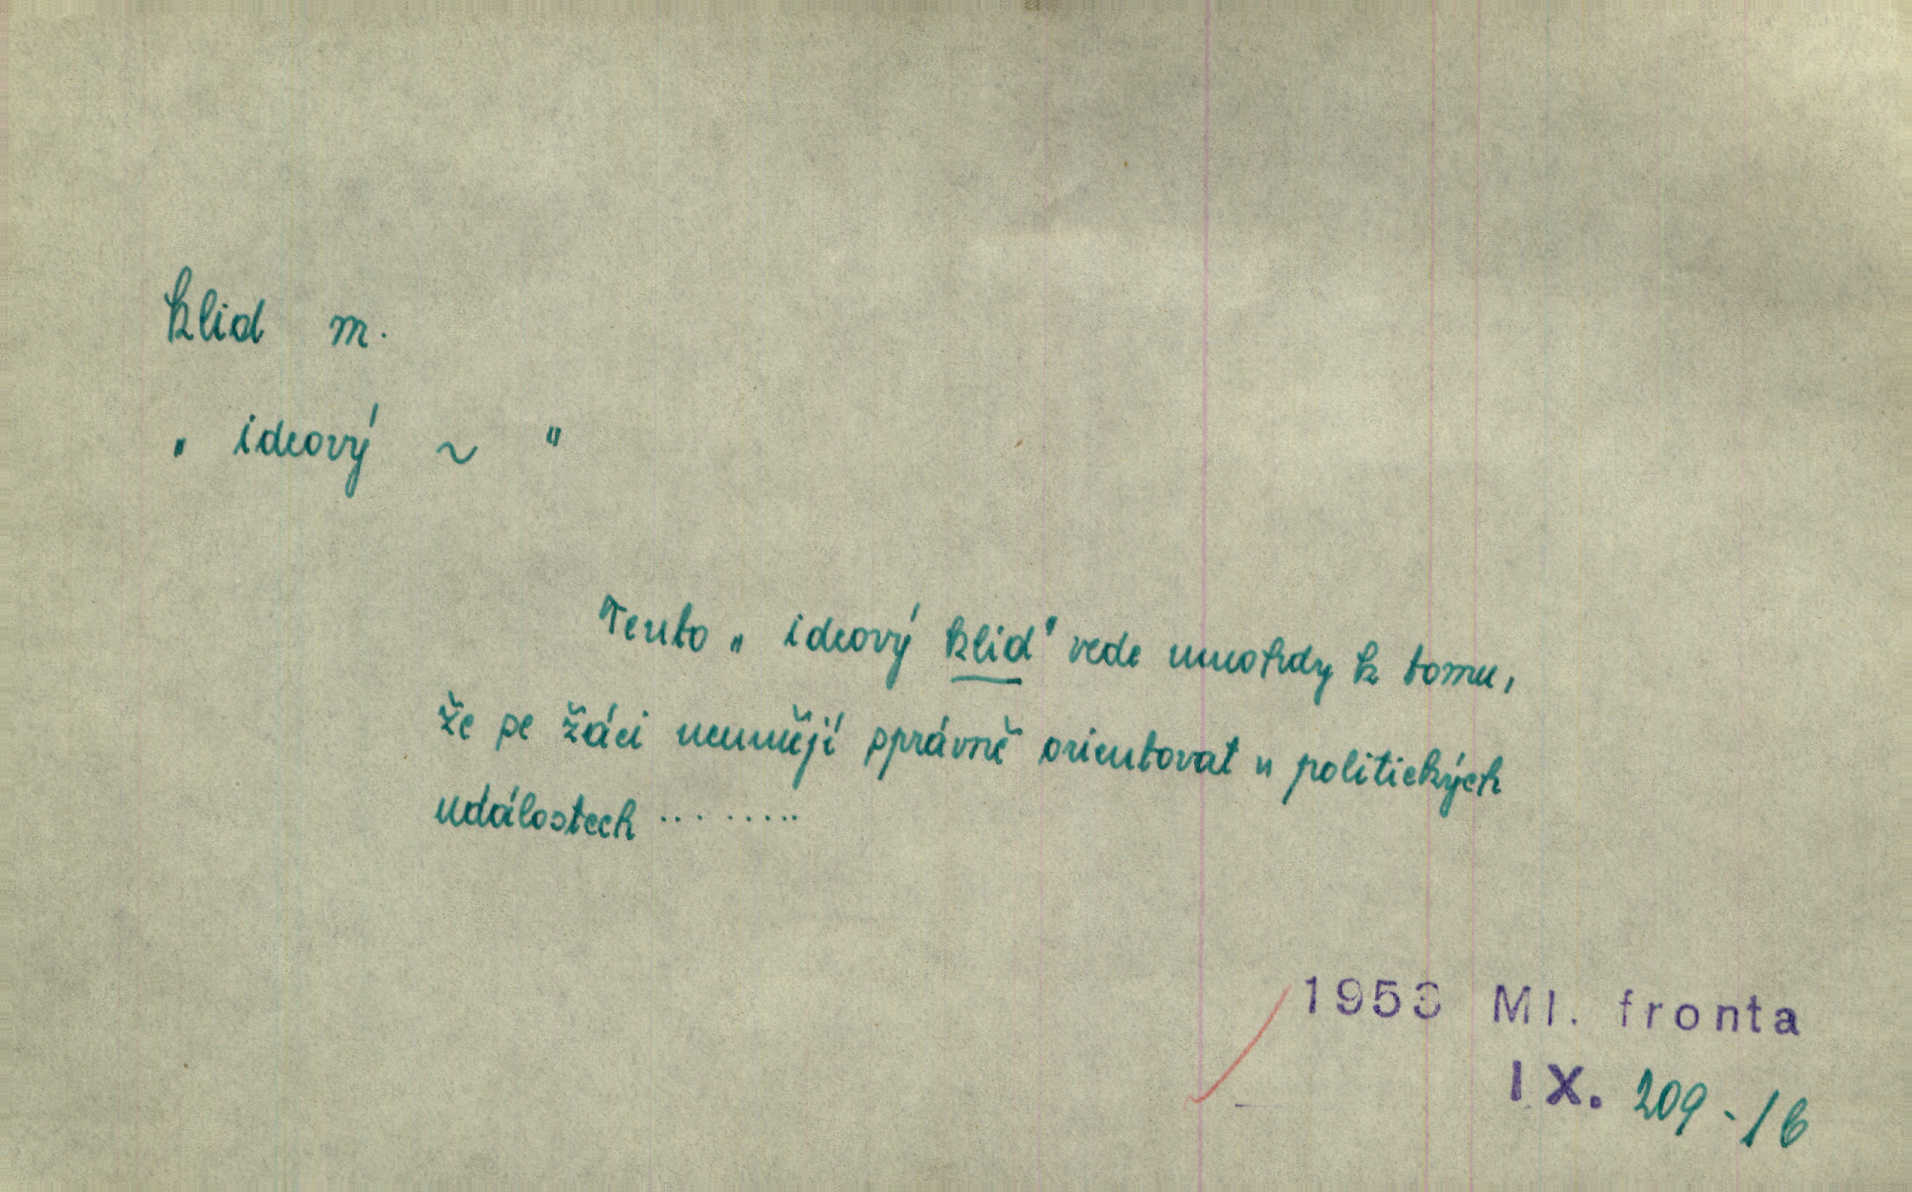 klid m.
„ ideový ~ "
Tento „ ideový klid" vede mnohdy k tomu,
že se žáci neumějí správně orientovat v politických
událostech ........
1953 Ml. fronta
IX. 209 - 16